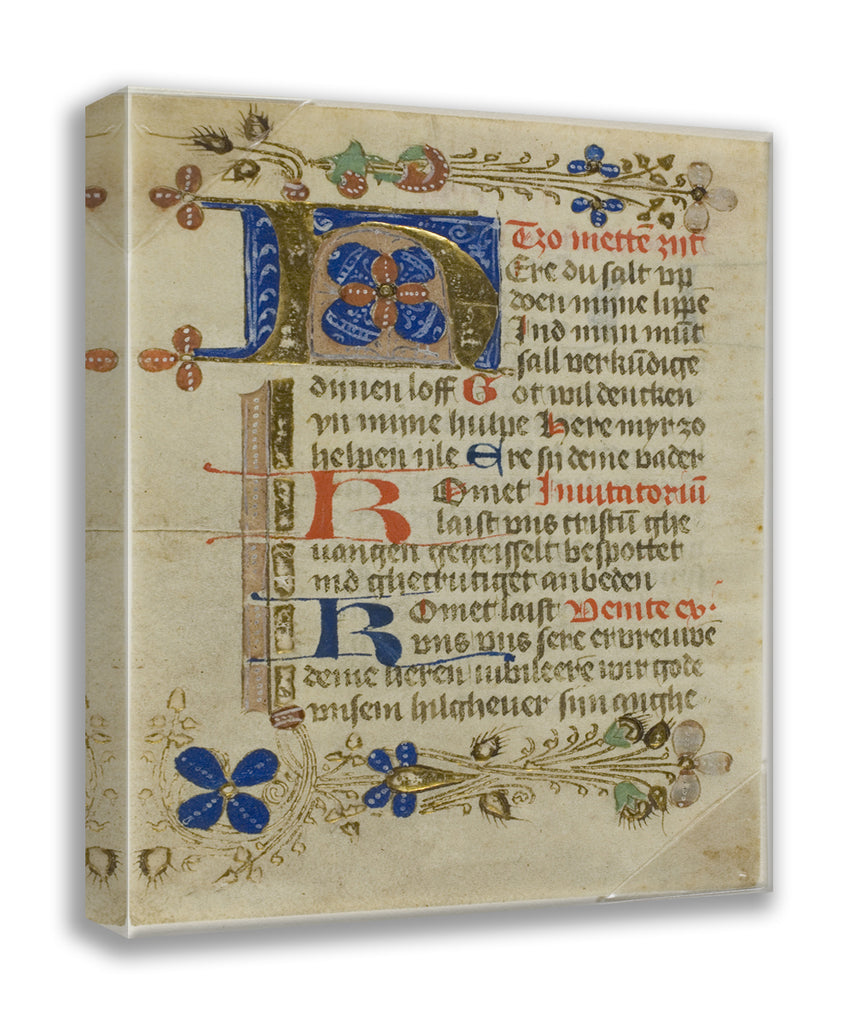 Tzo mettē zijt
HEre du salt vp
doen mijne lippe
Ind mijn mūt
sall verkūdige
dijnen loff Got wil dencken
yn mijne hulpe here myr zo
helpen ijle Ere sij deme vader
Komet Inuitatoriū
laist vns cristū ghe
uangen gegeisselt bespottet
ind ghecrutiget anbeden
Komet laist Venite ex·
vns vns sere ervreuwe
deme heren iubileere wir gode
vnsem hilgheuer sijn